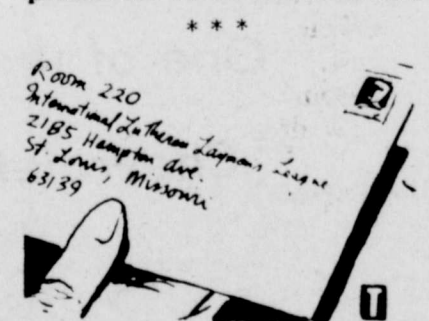 * * *
Room 220
International Lutheran Laymans League
2185 Hampton Ave.
St. Louis, Missouri
63139